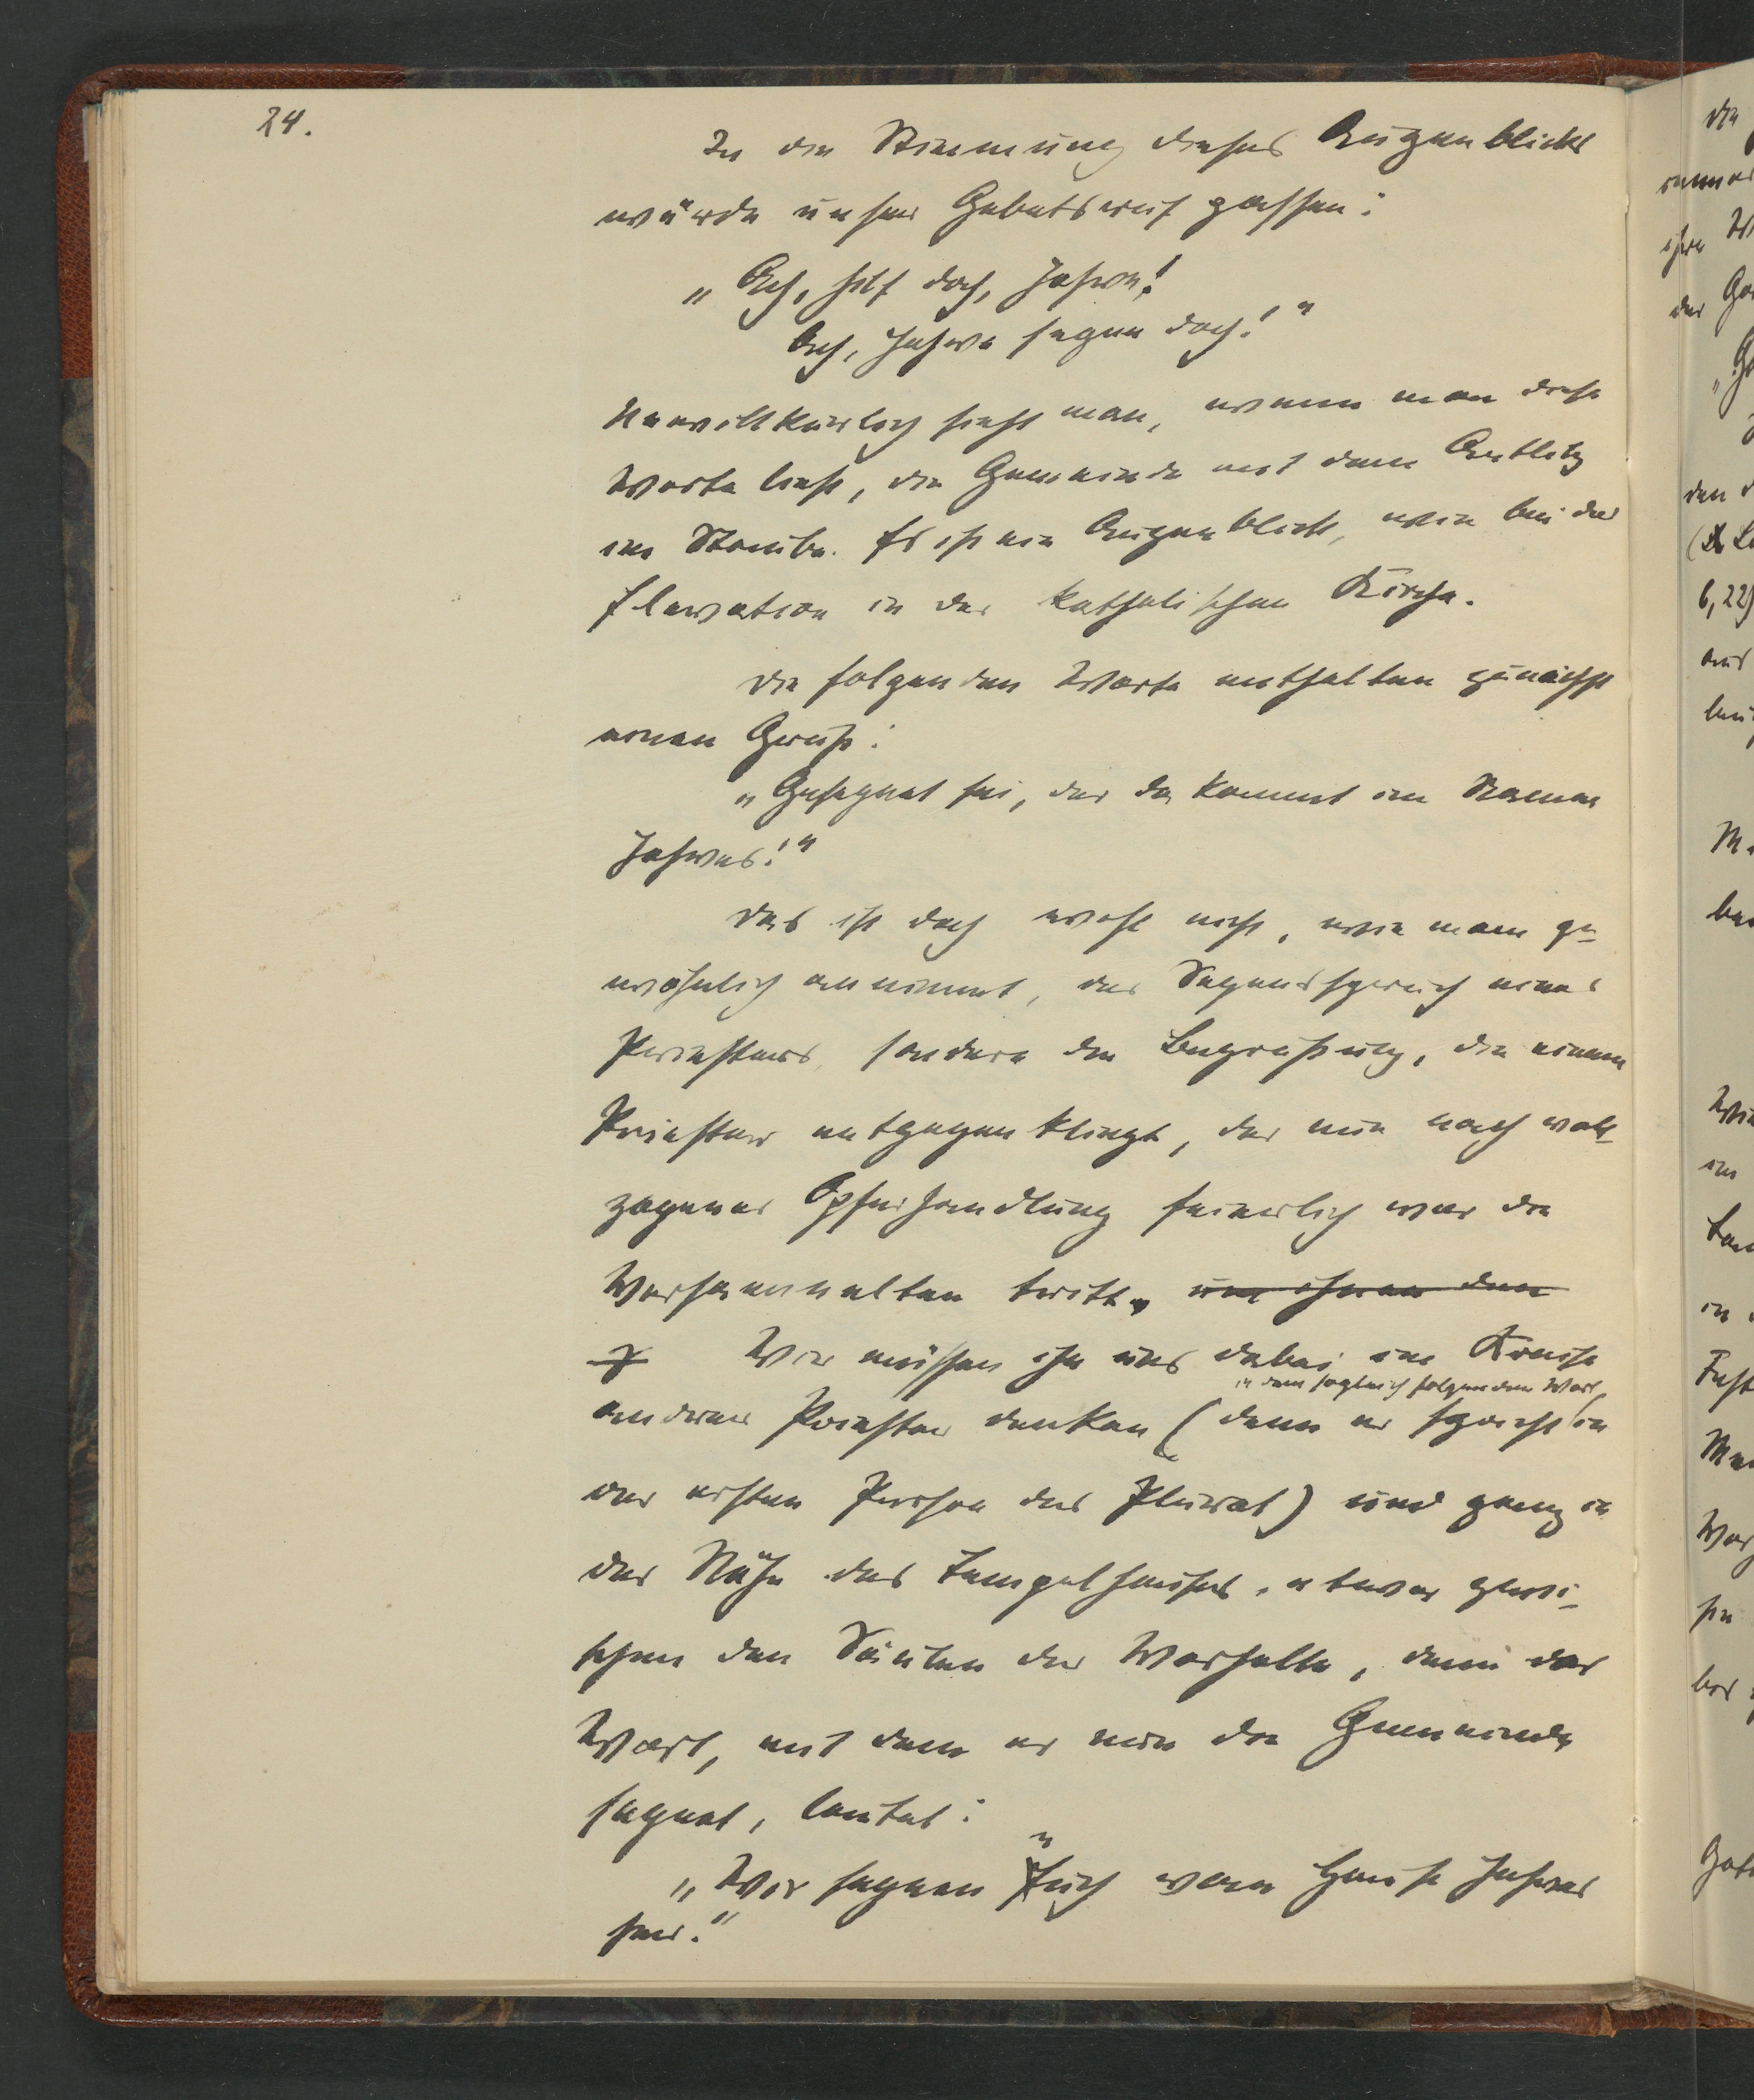 24.
In die Stimmung dieses Augenblicks
würde unser Gebetsruf passen:
„Ach, hilf doch, Jahve!
Ach, Jahve segne doch!"
Unwillkürlich sieht man, wenn man diese
Worte liest, die Gemeinde mit dem Antlitz
im Staube. Es ist ein Augenblick, wie bei der
Elevation in der katholischen Kirche.
Die folgenden Worte enthalten zunächst
einen Gruß:
„Gesegnet sei, der da kommt im Namen
Jahves!"
Das ist doch wohl nicht, wie man ge-
wöhnlich annimmt, der Segensspruch eines
Priesters, sondern die Begrüßung, die einem
Priester entgegenklingt, der nun nach voll-
zogener Opferhandlung feierlich vor die
Versammelten tritt. um ihnen den
Wir müssen ihn uns dabei im Kreise
in dem sogleich folgenden Wort,
anderer Priester denken (denn er spricht in
der ersten Person des Plural) und ganz in
der Nähe des Tempelhauses, etwa zwi-
schen den Säulen der Vorhalle, denn das
Wort, mit dem er nun die Gemeinde
segnet, lautet:
„Wir segnen Euch vom Hause Jahves
her."
die
ihre
der
den
6,22)
aus
in